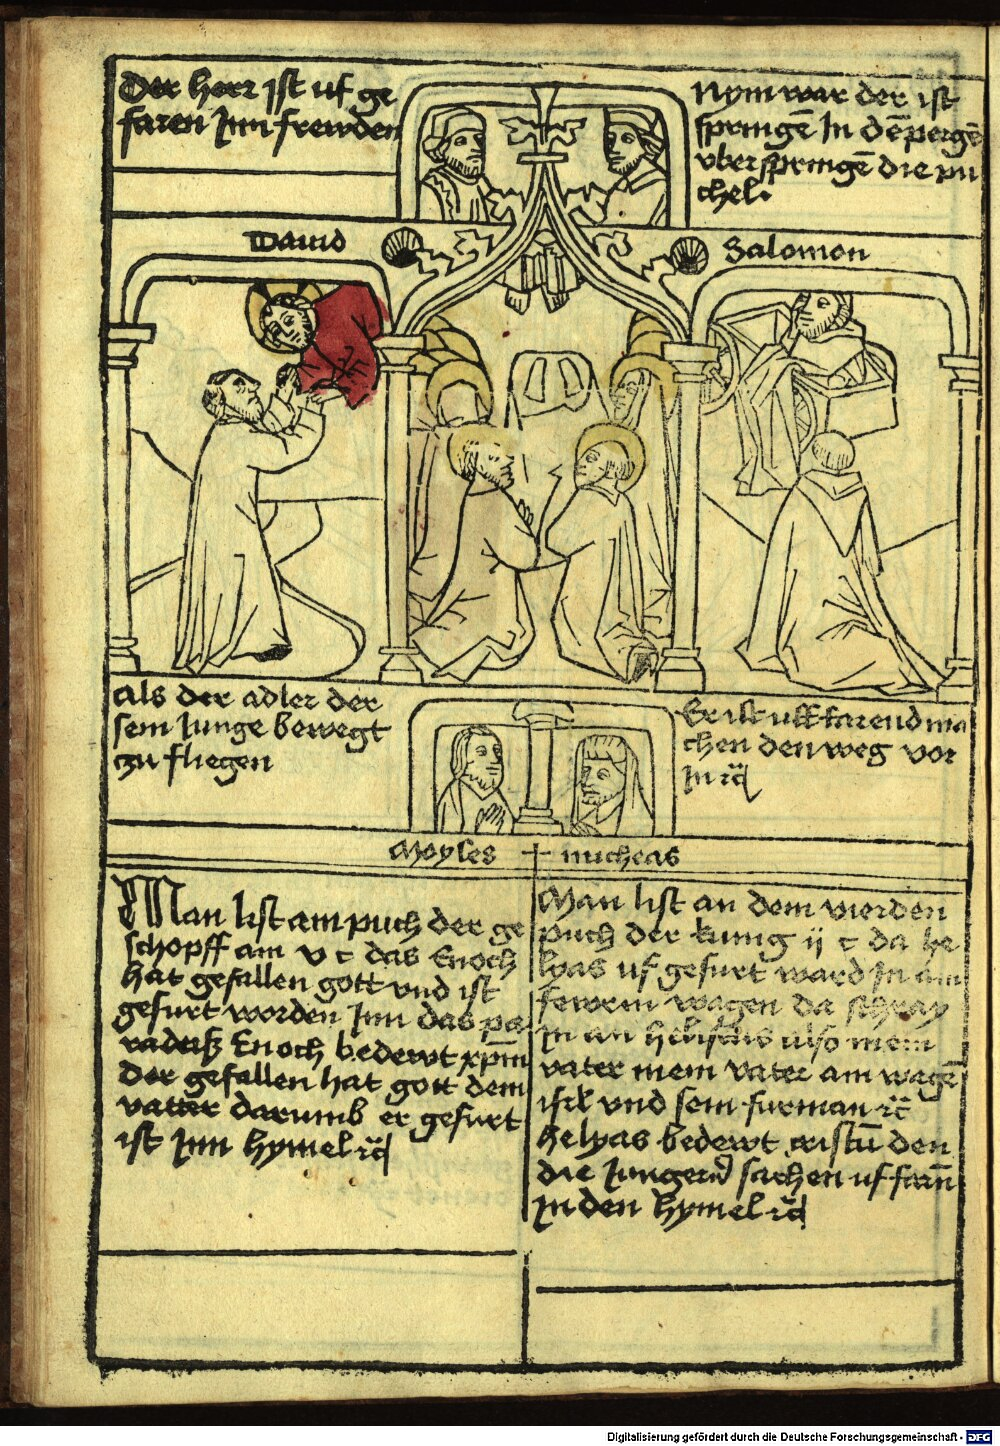 Der herr ist uf ge
faren Inn frewden
Nym war der ist
springē In dē pergē
vberspringē die pu
chel.
Dauid
Salomon
Als der adler der
sein Iunge bewegt
zu fliegen
Er ist uff farend ma
chen den weg vor
In rc̄
Moyses
micheas
Man list am puch der ge
schopff am v c das Enoch
hat gefallen gott vnd ist
gefurt worden Inn das pa
radeisz Enoch bedewt xp̄m
der gefallen hat gott dem
vatter darumb er gefurt
ist Inn hymel rc̄
Man list an dem vierden
puch der kunig ij c da he
lyas uf gefurt ward In am
fewrin wagen da schray
In an also mein
vater mein vater am wagē
isrl̄ vnd sein furman rc̄
helyas bedewt cristū den
die Iungern sachen uf farn̄
In den hymel rc̄
Digitalisierung gefördert durch die Deutsche Forschungsgemeinschaft - DFG